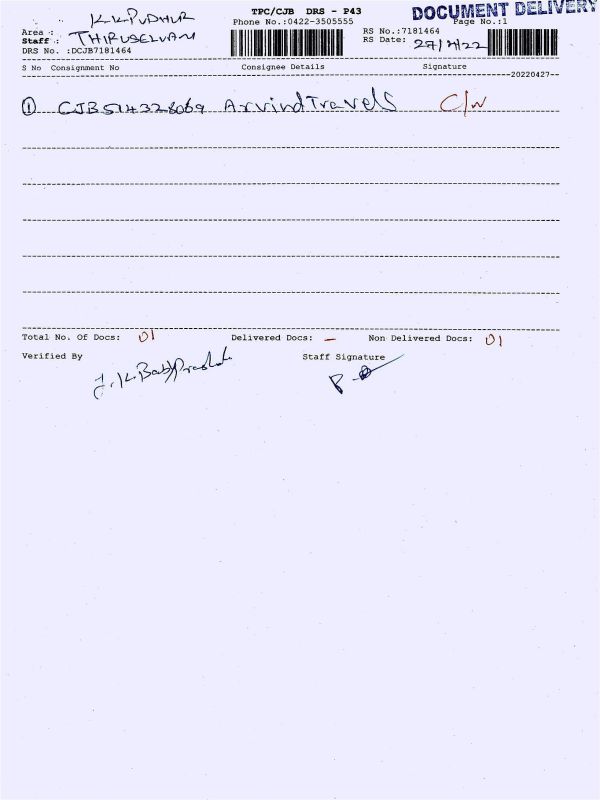 TPC/CJB DRS - P43 DOCUMENT DELIVERY
Area : K.K.PUDHUR Phone No.:0422-3505555 Page No.:1
Staff : THIRUSELVAM RS No.:7181464
DRS No. :DCJB7181464 RS Date: 27/4/22
S No Consignment No Consignee Details Signature
--20220427--
① CJB514328069 Arvind Travels C/W
Total No. Of Docs: 01 Delivered Docs: – Non Delivered Docs: 01
Verified By Staff Signature